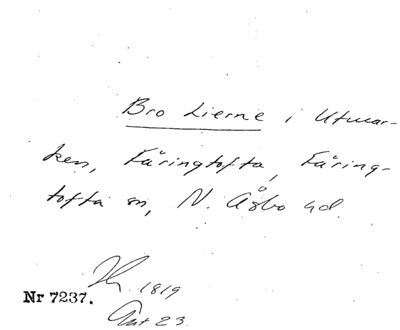 Bro Lierne i Utmar-
ken, Fåringtofta, Fåring-
tofta sn, N. Åsbo hd.
1819
Nr 7237.
Ant 23